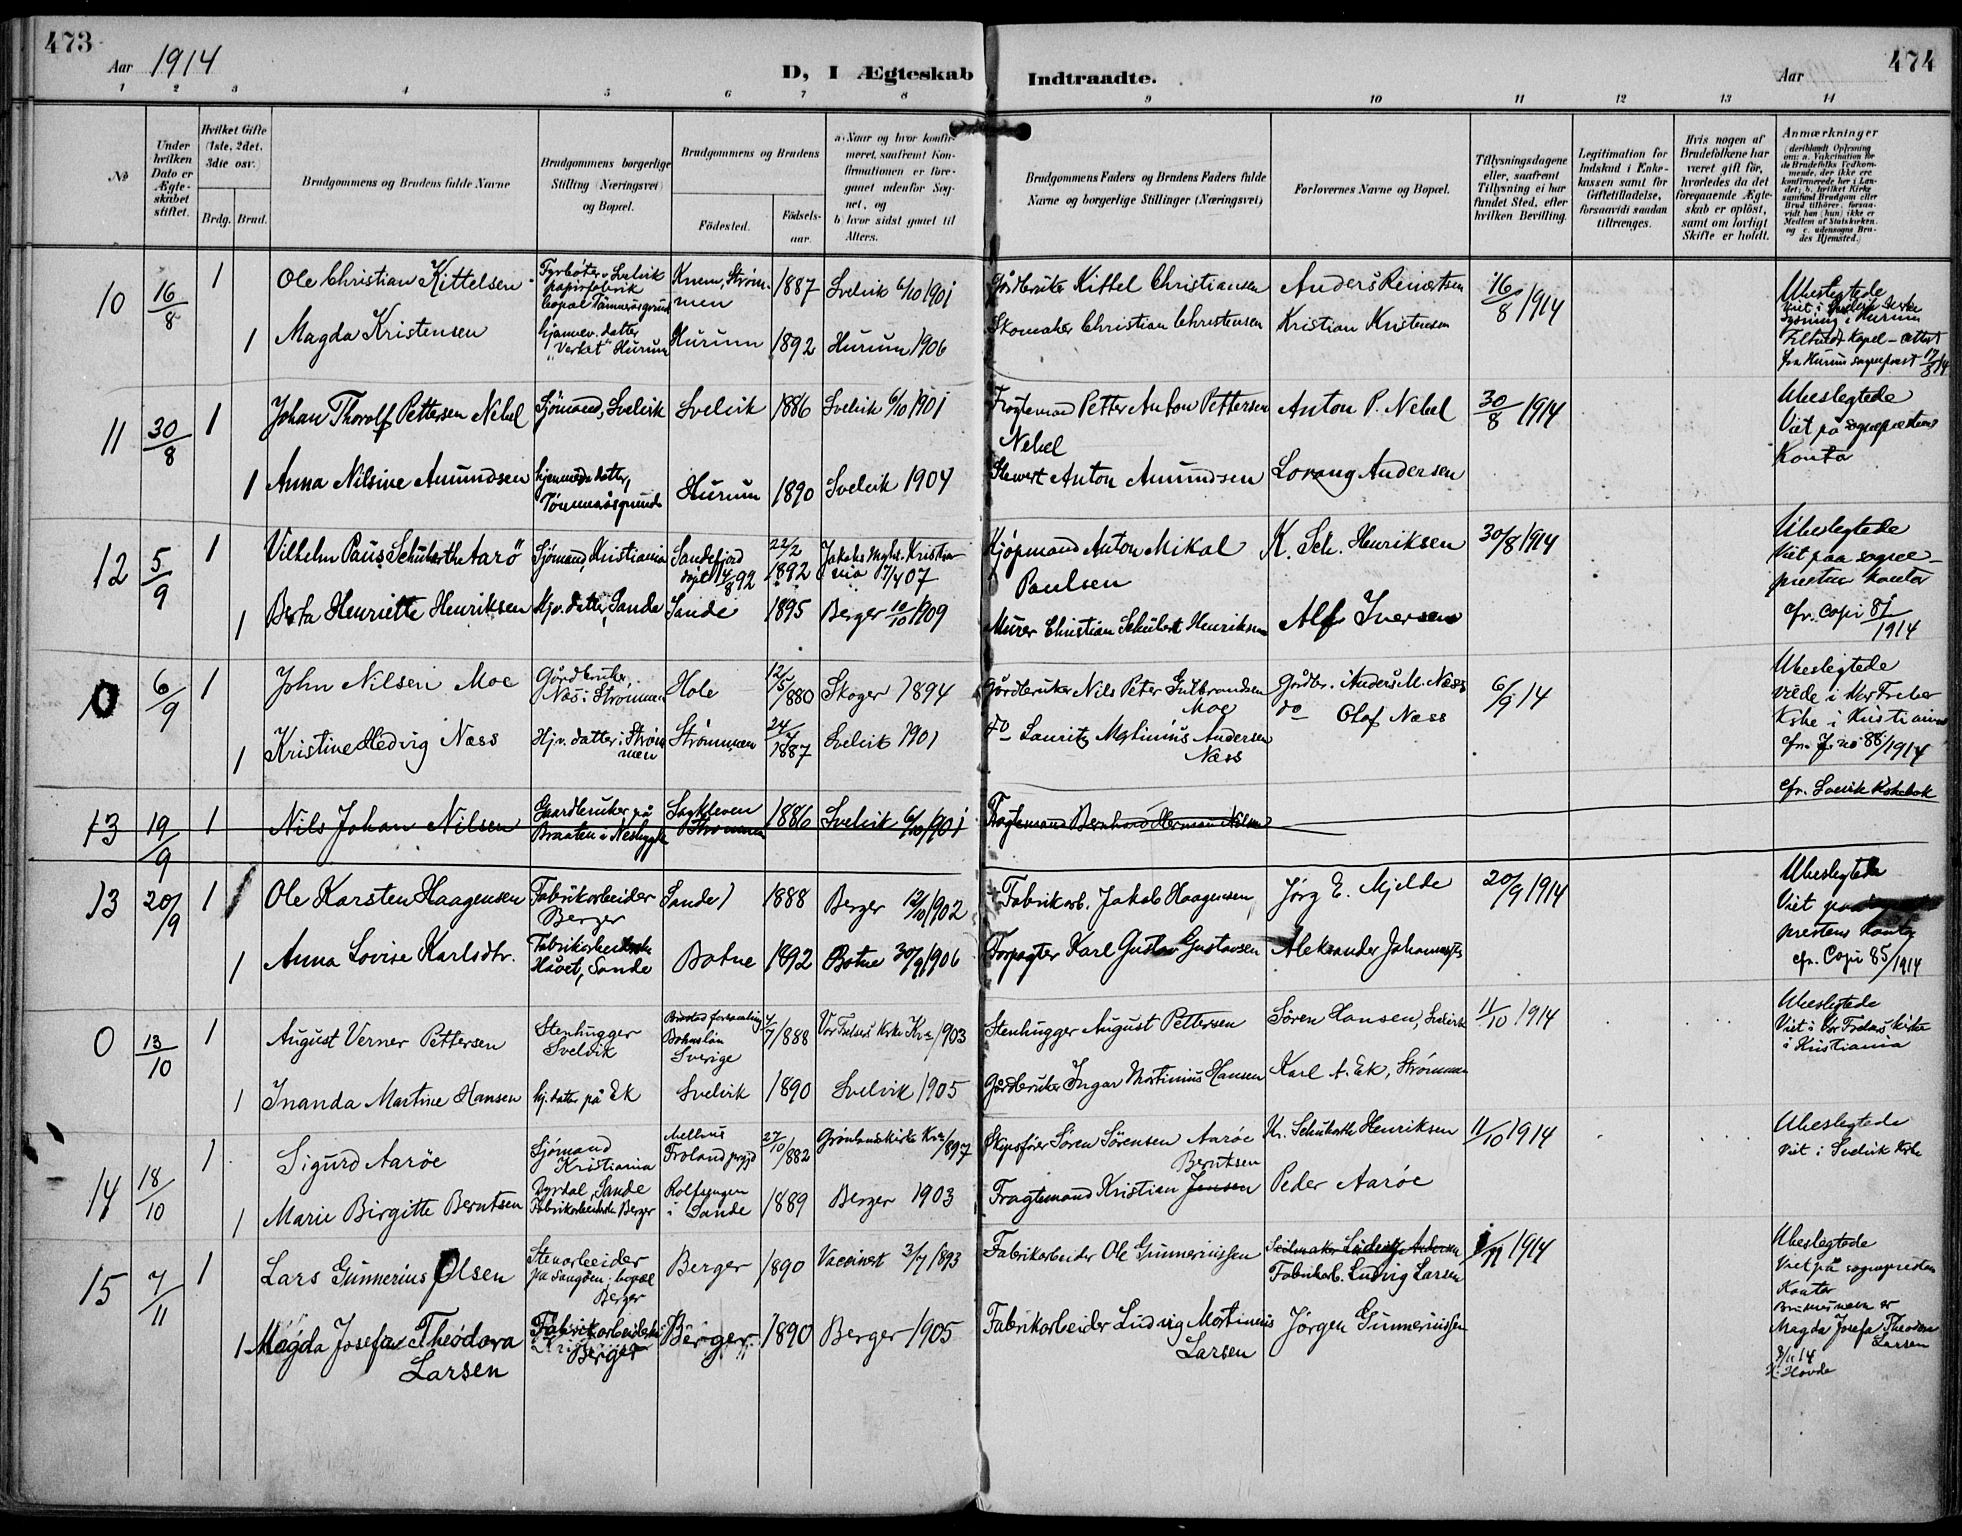 473
Aar 1914
D, I Ægteskab Indtraadte.
Aar
474
1 2 3 4 5 6 7 8 9 10 11 12 13 14
No
Under hvilken Dato er Ægteskabet stiftet.
Hvilket Gifte (1ste, 2det, 3die osv.)
Brdg. Brud.
Brudgommens og Brudens fulde Navne
Brudgommens borgerlige Stilling (Næringsvei) og Bopæl.
Brudgommens og Brudens
Fødested.
Fødselsaar.
a) Naar og hvor konfirmeret, saafremt Konfirmationen er foregaaet udenfor Sognet, og
b) hvor sidst gaaet til Alters.
Brudgommens Faders og Brudens Faders fulde Navne og borgerlige Stillinger (Næringsvei)
Forlovernes Navne og Bopæl.
Tillysningsdagene eller, saafremt Tillysning ei har fundet Sted, efter hvilken Bevilling.
Legitimation for Indskud i Enkekassen samt for Giftetilladelse, forsaavidt saadan tiltrænges.
Hvis nogen af Brudefolkene har været gift før, hvorledes da det foregaaende Ægteskab er opløst, samt om lovligt Skifte er holdt.
Anmærkninger (deriblandt Oplysning om: a. Vakcination for de Brudefolks Vedkommende, der ikke ere konfirmerede her i Landet; b. hvilket Kirkesamfund Brudgom eller Brud tilhører, forsaavidt han (hun) ikke er Medlem af Statskirken, og c. udensogns Brudes Hjemsted.)
10 16/8 1 Ole Christian Kittelsen Fyrbøter v. Svelvik papirfabrik bopæl Tømmeråsgrund Knem, Strømmen 1887 Svelvik 6/10 1901 Gårdbruker Kittel Christiansen Anders Reinertsen 16/8 1914 Ubeslegtede
1 Magda Kristensen hjemmev. datter "Verket" Hurum Hurum 1892 Hurum 1906 Skomaker Christian Christensen Kristian Kristensen
Filtvedt Kapel - attest fra Hurum sogneprest 17/8 14
11 30/8 1 Johan Thorolf Pettersen Nebel Sjömand, Svelvik Svelvik 1886 Svelvik 6/10 1901 Fragtemand Petter Anton Pettersen Nebel Anton P. Nebel 30/8 1914 Ubeslegtede
Viet på sogneprestens Kontor
1 Anna Nilsine Amundsen hjemmev. datter, Tömmeråsgrund Hurum 1890 Svelvik 1904 Stewert Anton Amundsen Lorang Andersen
12 5/9 1 Vilhelm Paus Schuharthe Aarö Sjömand, Kristiania Sandefjord døpt 14/8 92 22/2 1892 Jakobs Mgh. Kristiania 7/4 07 Kjøpmand Anton Mikal Paulsen K. Sch. Henriksen 30/8 1914 Ubeslegtede
Viet paa sogneprestens kontor
cfr. Copi 81/1914
1 Berta Henriette Henriksen Hjv. datter, Sande Sande 1895 Berger 10/10 1909 Murer Christian Schubert Henriksen Alf Iversen
0 6/9 1 John Nilsen Moe Gårdbruker, Næs i Strømmen Hole 12/5 /880 Skoger 1894 Gårdbruker Nils Peter Gulbrandsen Moe Gårdbr. Anders M. Næss 6/9 14 Ubeslegtede
viede i Vor Frelser Kirke i Kristiania
cfr. J. no 88/1914
1 Kristine Hedvig Næss Hjv. datter i Strømmen Strømmen 24/7 1887 Svelvik 1901 do Lauritz Melinius Andersen Næss do Olaf Næss
13 19/9 1 Nils Johan Nilsen Gaardbruker på Braaten i Nesbygda Sagkleven Strømmen 1886 Svelvik 6/10 1901 Fragtemand Bernhard Herman Nilsen cfr. Svelvik Kirkebok
13 20/9 1 Ole Karsten Haagensen Fabrikarbeider Berger Sande 1888 Berger 12/10 1902 Fabrikarb. Jakob Haagensen Jörg E. Mjelde 20/9 1914 Ubeslegtede
Viet paa prestens Kontor
cfr. Copi 85/1914
1 Anna Lovise Karlsdtr. Fabrikarbeiderske Håvet, Sande Botne 1892 Botne 30/9 1906 Forpagter Karl Gustav Gustavsen Aleksander Johannessen
0 13/10 1 August Verner Pettersen Stenhugger Svelvik Bohuslän Sverige 4/7 /888 Vor Frelsers Kirke Kra 1903 Stenhugger August Pettersen Sören Hansen, Svelvik 11/10 1914 Ubeslegtede
Viet i Vor Frelsers kirke i Kristiania
1 Inanda Martine Hansen hj. datter på Ek Svelvik 1890 Svelvik 1905 Gårdbruker Ingar Martinius Hansen Karl A. Ek, Strømmen
14 18/10 1 Sigurd Aarøe Sjömand Kristiania Froland prgjd 27/10 /882 Grönlandskirke Kra /897 Skipsfører Sören Sörensen Aaröe K. Schuharth Henriksen 11/10 1914 Ubeslegtede
Viet i Svelvik Kirke
1 Marie Birgitte Berntsen Nyrdal, Sande Fabrikarbeiderske Berger Rolfsengen i Sande 1889 Berger 1903 Fragtemand Kristian Jensen Berntsen Peder Aaröe
15 7/11 1 Lars Gunnerius Olsen Stenarbeider på Sangöen; bopæl Berger Berger 1890 Vaccinert 3/7 1893 Fabrikarbeider Ole Gunneriussen Seilmaker Ludvig Andersen Fabrikarb. Ludvig Larsen 1/11 1914 Ubeslegtede
Viet på sogneprestens Kontor
Brudens navn er Magda Josefa Theodora Larsen
8/11 14
H. Hovde
1 Magda Josefa Theodora Larsen Fabrikarbeiderske Berger Berger 1890 Berger 1905 Fabrikarbeider Ludvig Martinius Larsen Jörgen Gunneriussen